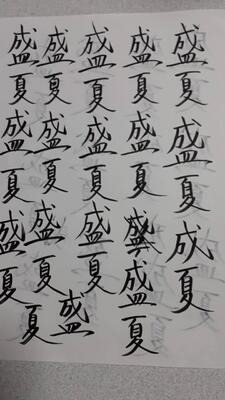 盛夏盛夏成夏
盛夏盛夏盛夏
盛夏盛夏盛夏
盛夏盛夏盛夏
盛夏盛夏盛夏
盛夏